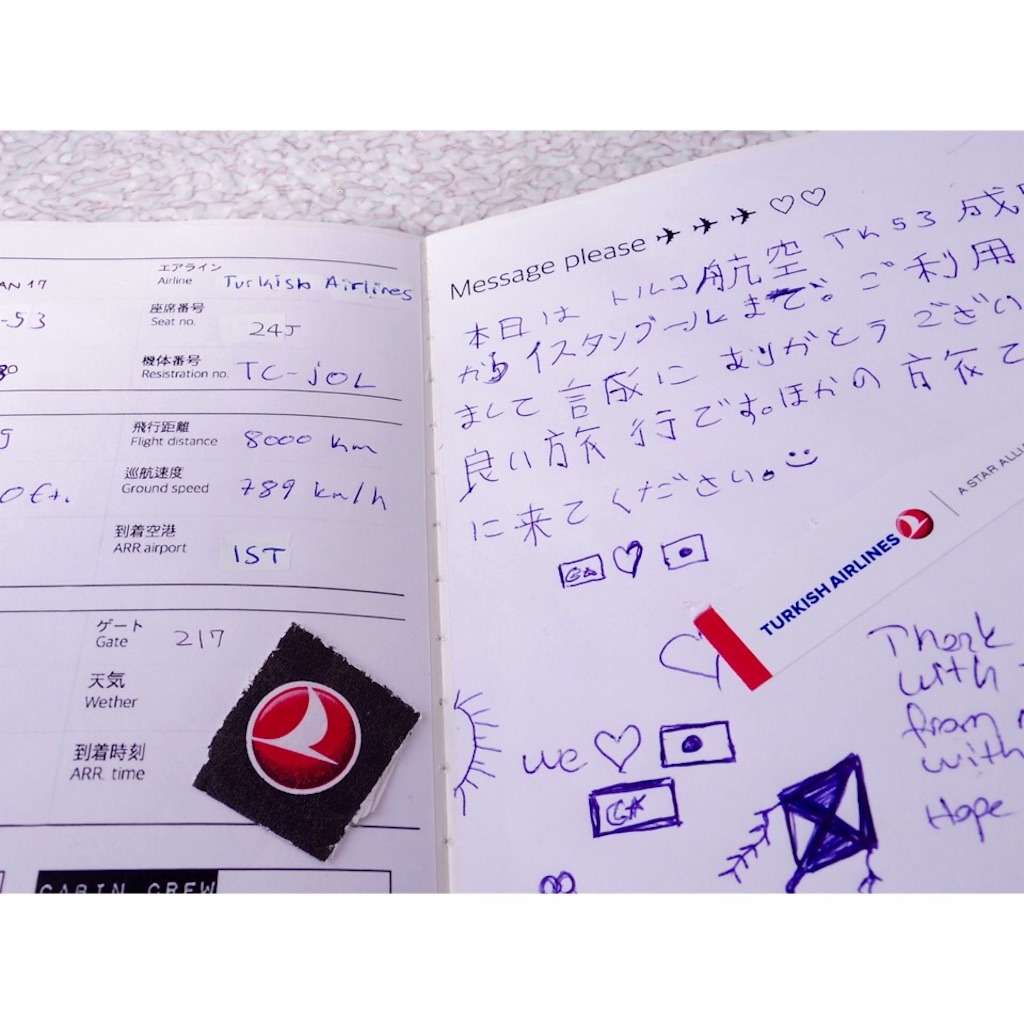 AN 17
エアライン
Airline
Turkish Airlines
-53
座席番号
Seat no.
24J
機体番号
Resistration no.
TC-JOL
飛行距離
Flight distance
8000 km
0 ft.
巡航速度
Ground speed
789 km/h
到着空港
ARR.airport
IST
ゲート
Gate
217
天気
Wether
到着時刻
ARR. time
CABIN CREW
Message please
本日は トルコ航空 TK53 成田
から イスタンブールまで。ご利用
まして 誠に ありがとう ござい
良い旅行です。ほかの
に来てください。
TURKISH AIRLINES
A STAR ALLI
we
Thank
with
from
with
Hope